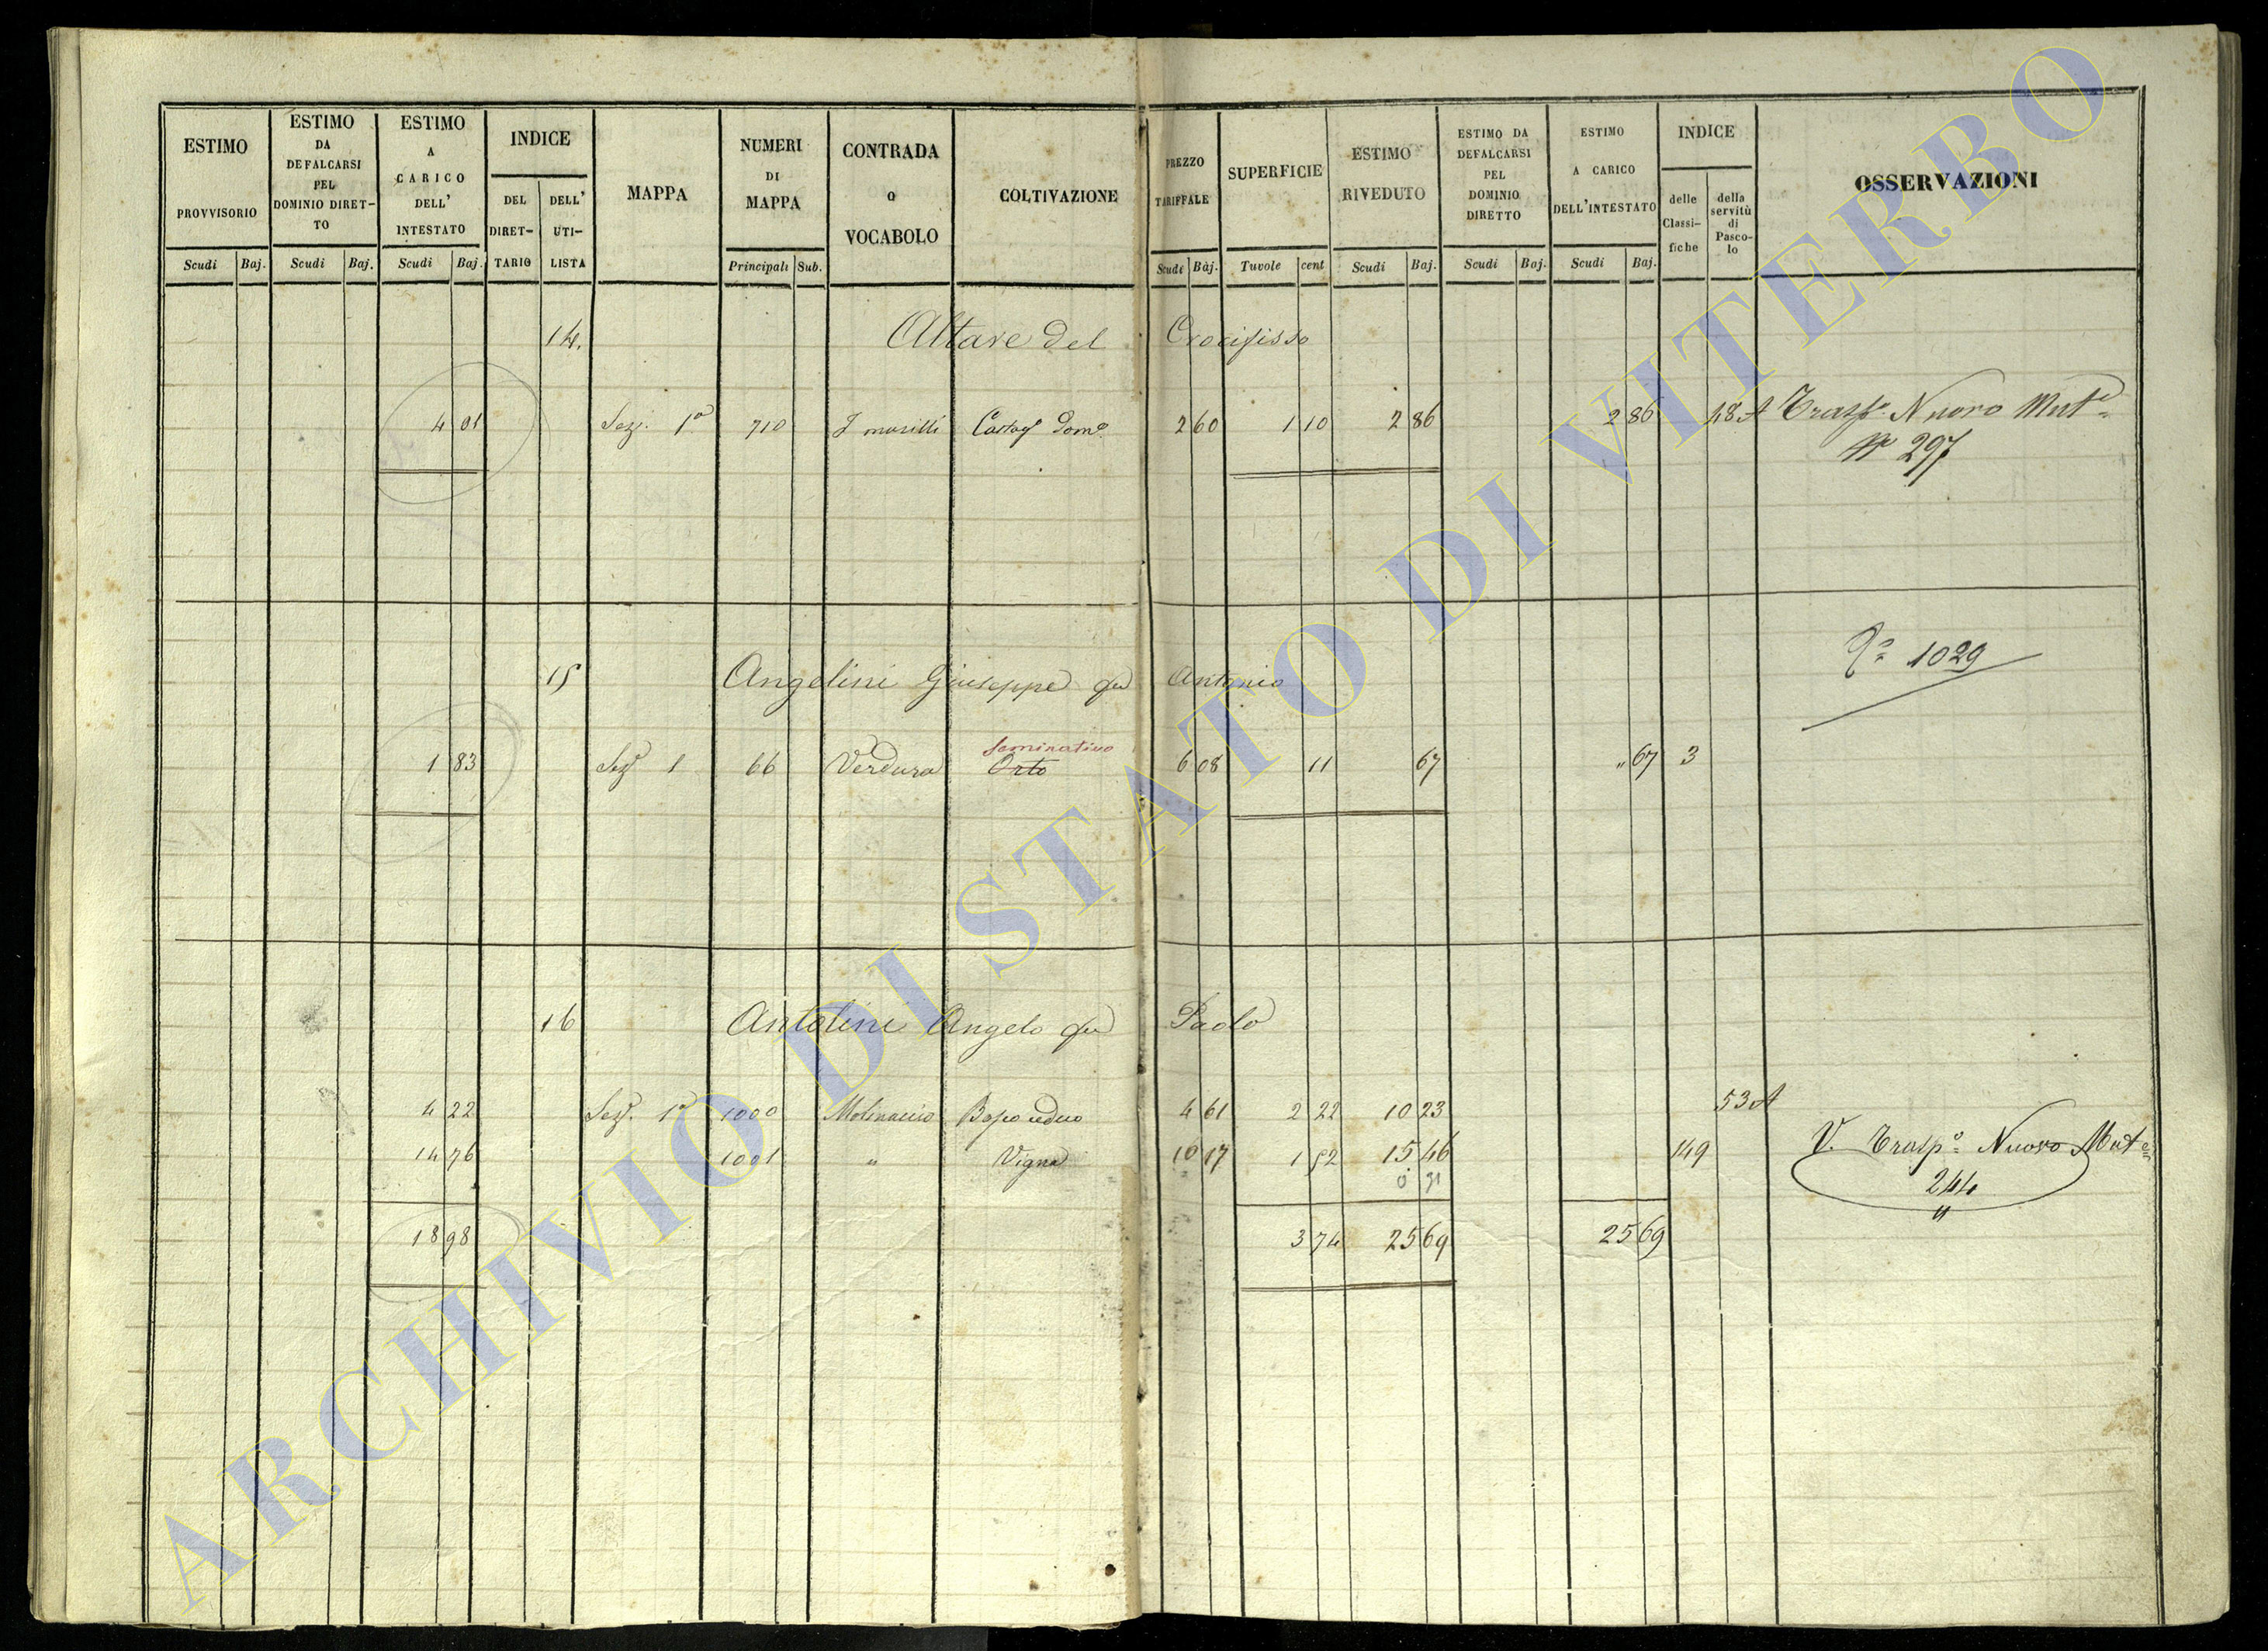 ESTIMO PROVVISORIO
Scudi Baj.
ESTIMO DA DEFALCARSI PEL DOMINIO DIRET-TO
Scudi Baj.
ESTIMO A CARICO DELL' INTESTATO
Scudi Baj.
INDICE
DEL DIRET-TARIO
DELL' UTI-LISTA
MAPPA
NUMERI DI MAPPA
Principali Sub.
CONTRADA O VOCABOLO
COLTIVAZIONE
PREZZO TARIFFALE
Scudi Baj.
SUPERFICIE
Tavole cent
ESTIMO RIVEDUTO
Scudi Baj.
ESTIMO DA DEFALCARSI PEL DOMINIO DIRETTO
Scudi Baj.
ESTIMO A CARICO DELL'INTESTATO
Scudi Baj.
INDICE
delle Classi-fiche
della servitù di Pasco-lo
OSSERVAZIONI
14. Altare del Crocifisso
4 01 Sez. 1a 710 Castag dome 2 60 1 10 2 86 2 86 48 A Traspo Nuovo Mute
No 297
1029
15 Angelini Giuseppe qu Antonio
Seminativo
1 83 Sez 1 66 Verdura Orto 6 08 11 67 " 67 3
16 Antolini Angelo qu Paolo
4 22 Sez. 1a 1000 Molinaccio Bosco ceduo 4 61 2 22 10 23 53 A
14 76 1001 " Vigna 10 17 1 52 15 46 149 V. Traspo Nuovo Mut
244
"
18 98 3 74 25 69 25 69
ARCHIVIO DI STATO DI VITERBO